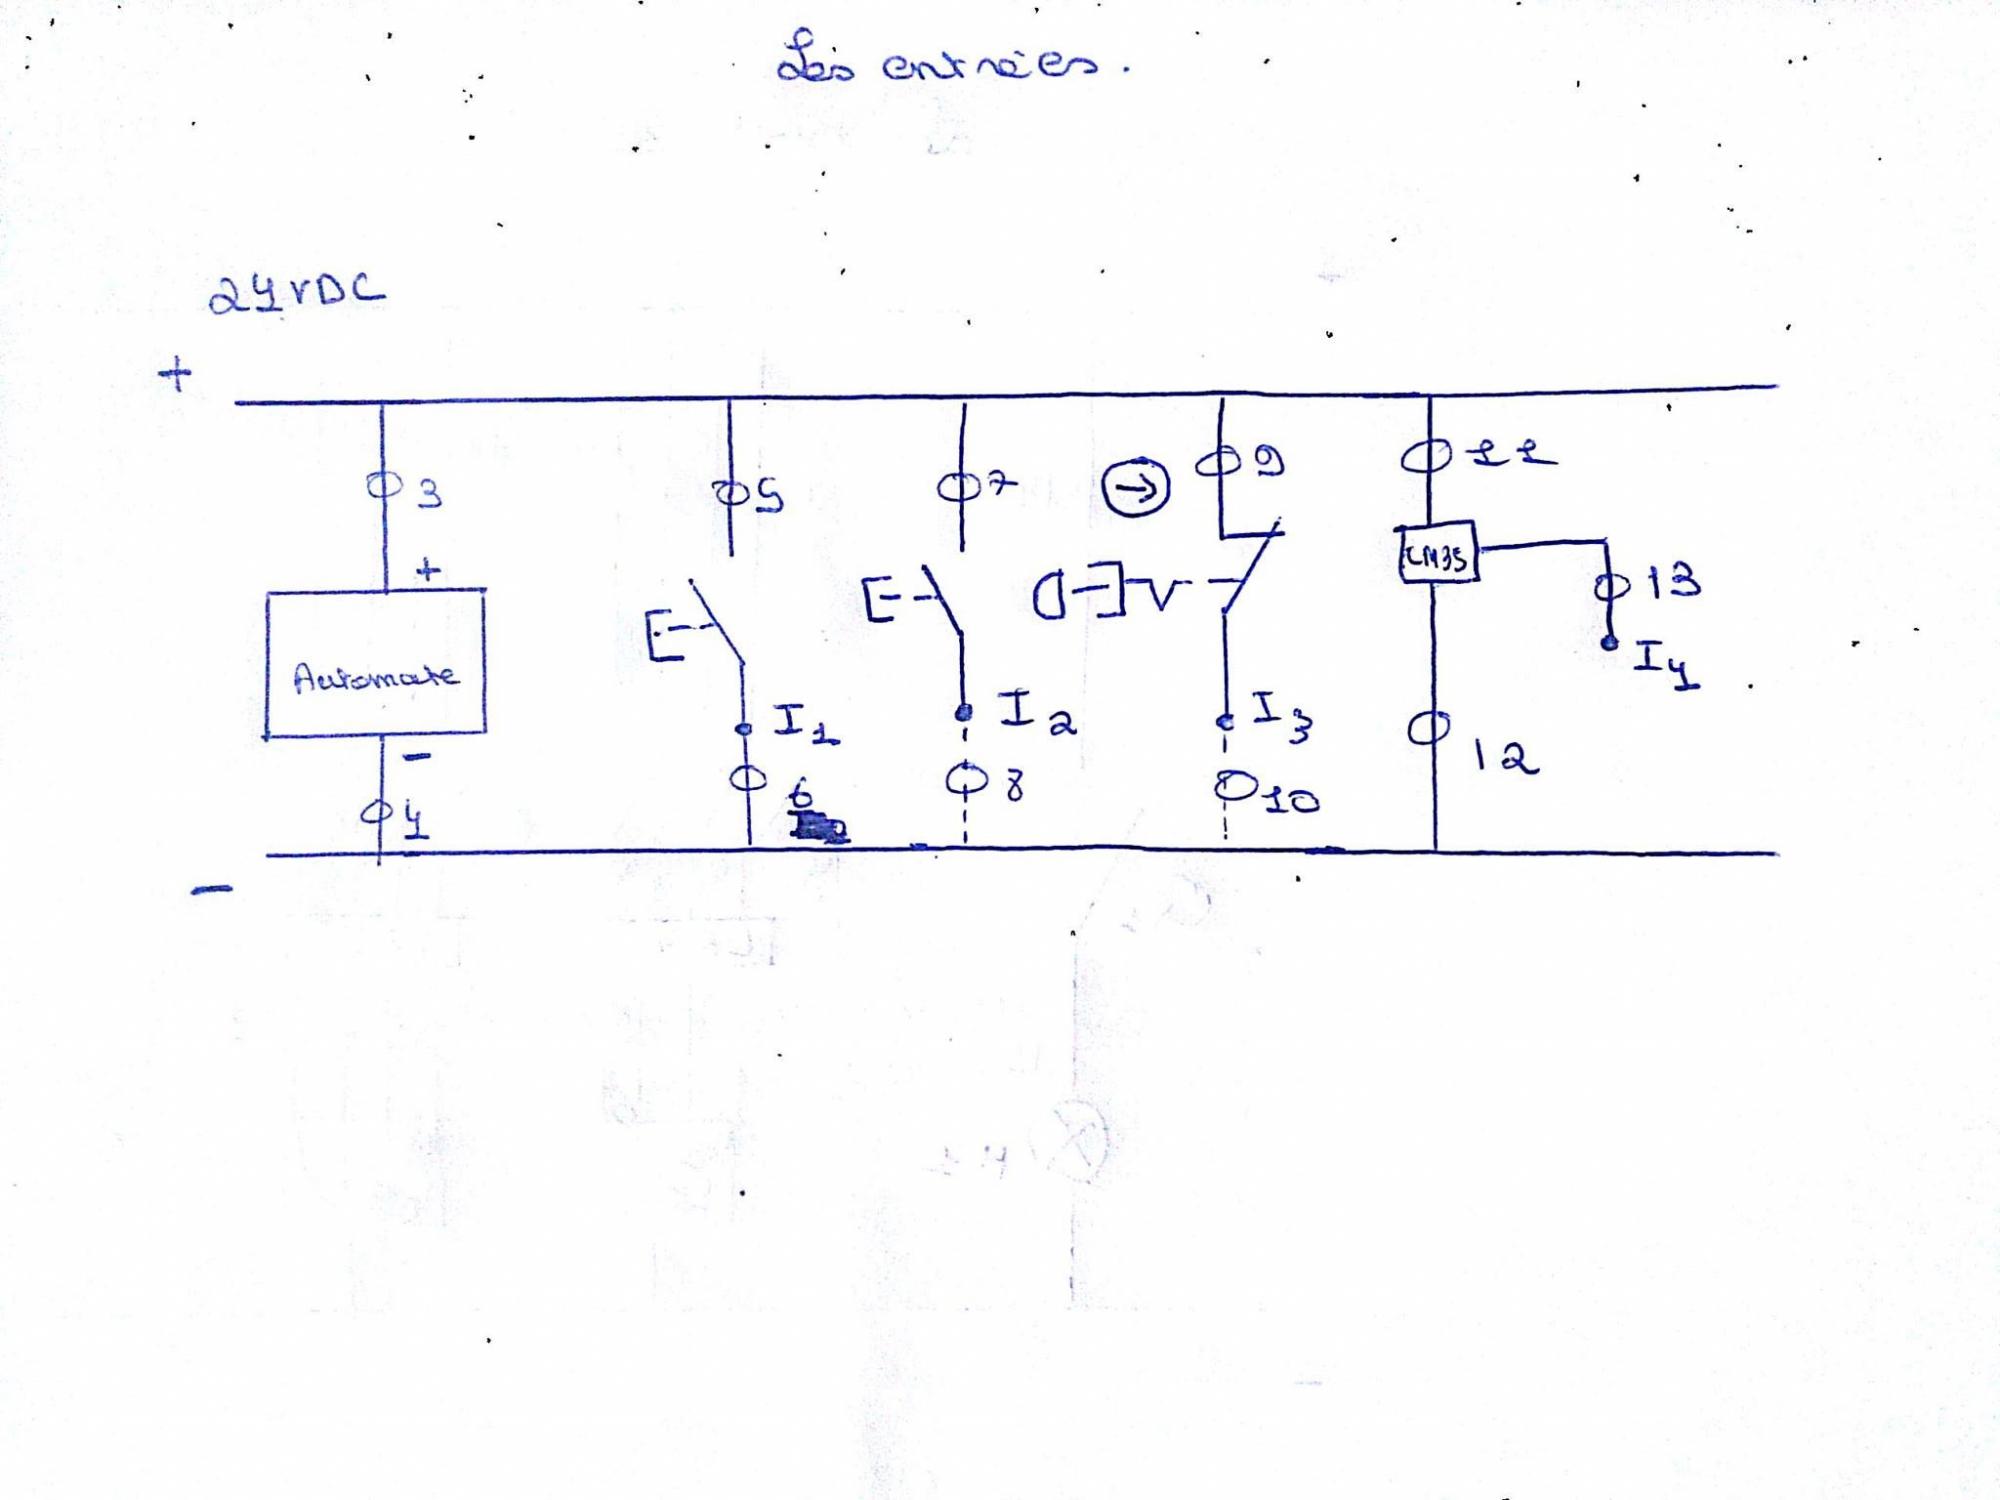 Les entrées.
24VDC
+
3
5
7
9
11
+
LM35
13
Automate
I4
I1
I2
I3
-
6
8
10
12
4
-